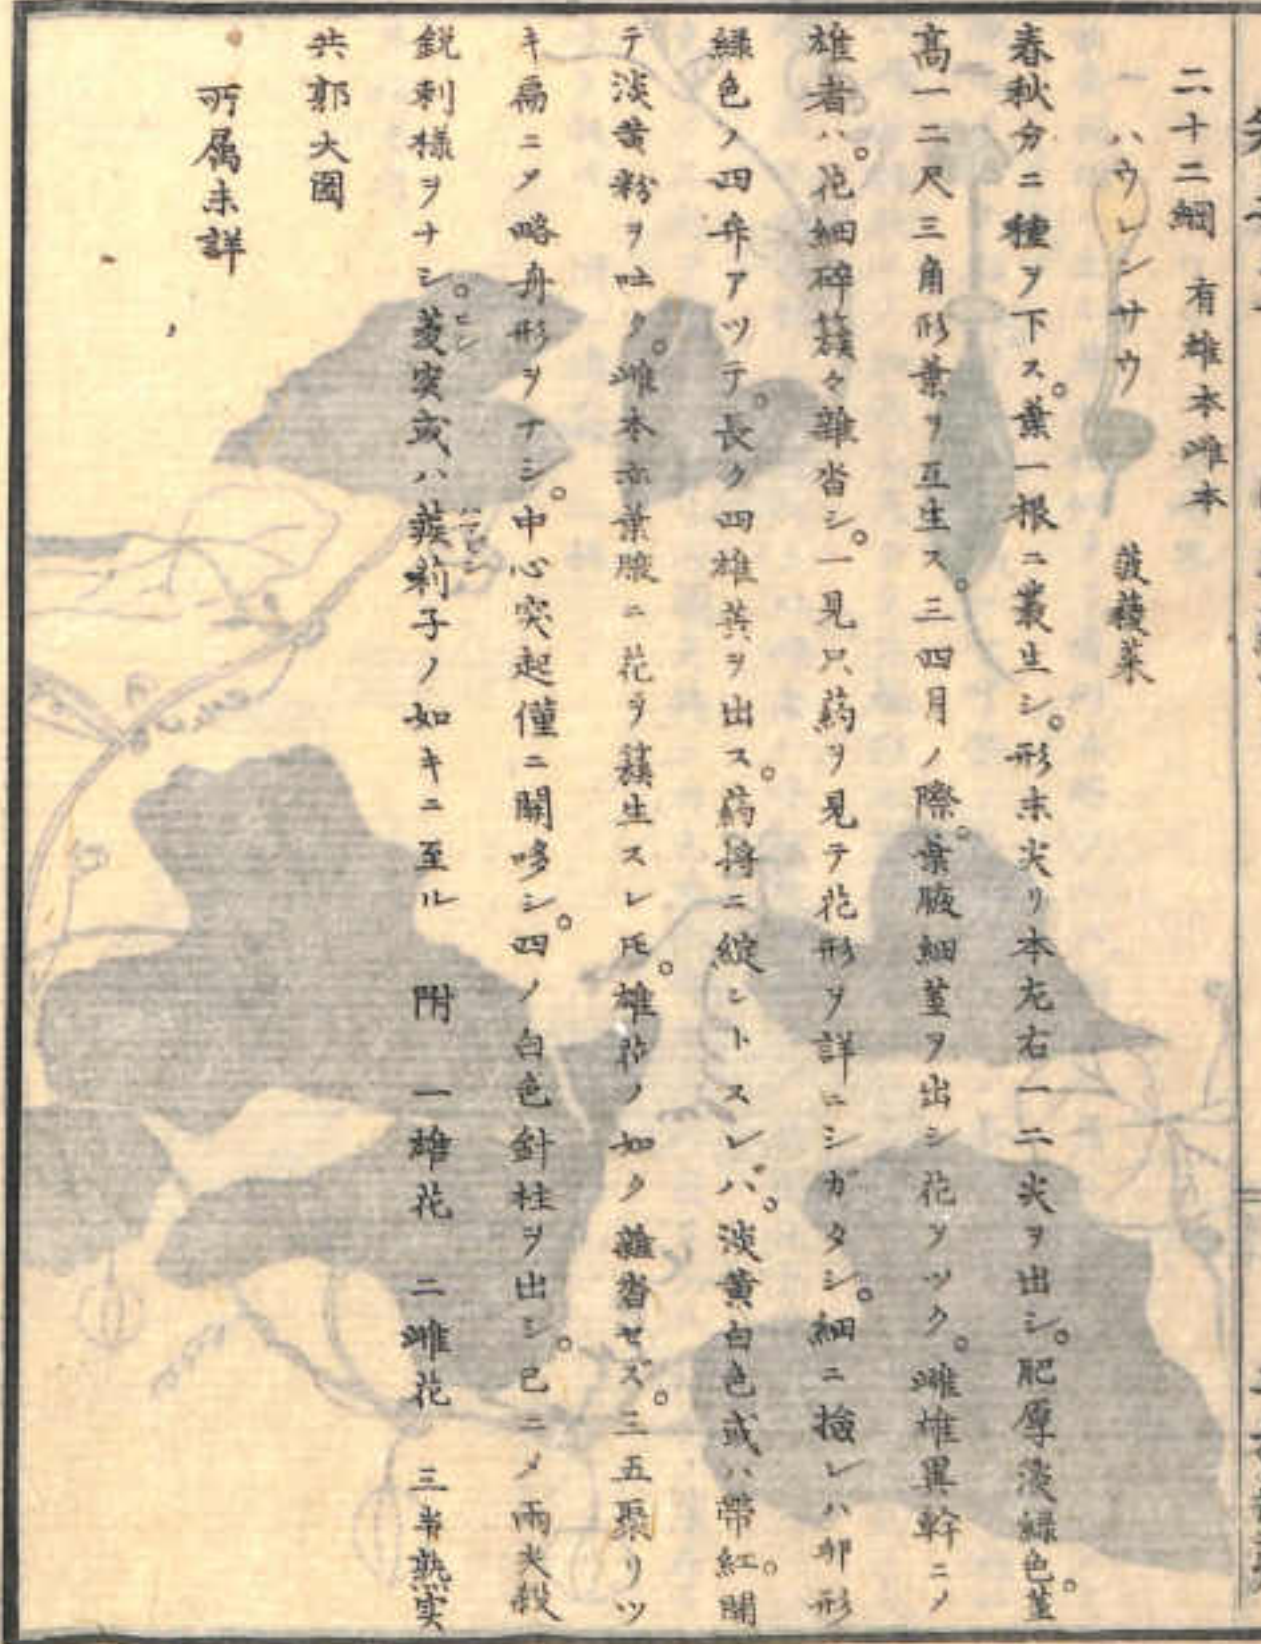 二十二綱　有雄本雌本
ハウレンサウ　菠薐菜
春秋分ニ種ヲ下ス。葉一根ニ叢生シ。形末尖リ本尢右一二尖ヲ出シ。肥厚淡緑色。莖
高一二尺三角形葉ヲ互生ス。三四月ノ際。葉腋細莖ヲ出シ花ヲツク。雌雄異幹ニノ
雄者ハ。花細碎簇々雜沓シ。一見只葯ヲ見テ花形ヲ詳ニシガタシ。細ニ撿レハ卵形
緑色ノ四弁アツテ。長ク四雄蕋ヲ出ス。葯将ニ綻ントスレバ。淡黄白色或ハ帯紅。開
テ淡黄粉ヲ吐ク。雌本亦葉腋ニ花ヲ簇生スレ𪜈。雄花ノ如ク雜沓セズ。三五聚リツ
キ扁ニノ略舟形ヲナシ。中心突起僅ニ開哆シ。四ノ白色針柱ヲ出シ。已ニノ両尖殺
鋭刺様ヲナシ。菱実或ハ蒺莉子ノ如キニ至ル　附　一雄花　二雌花　三半熟実
共郭大圖
所属未詳